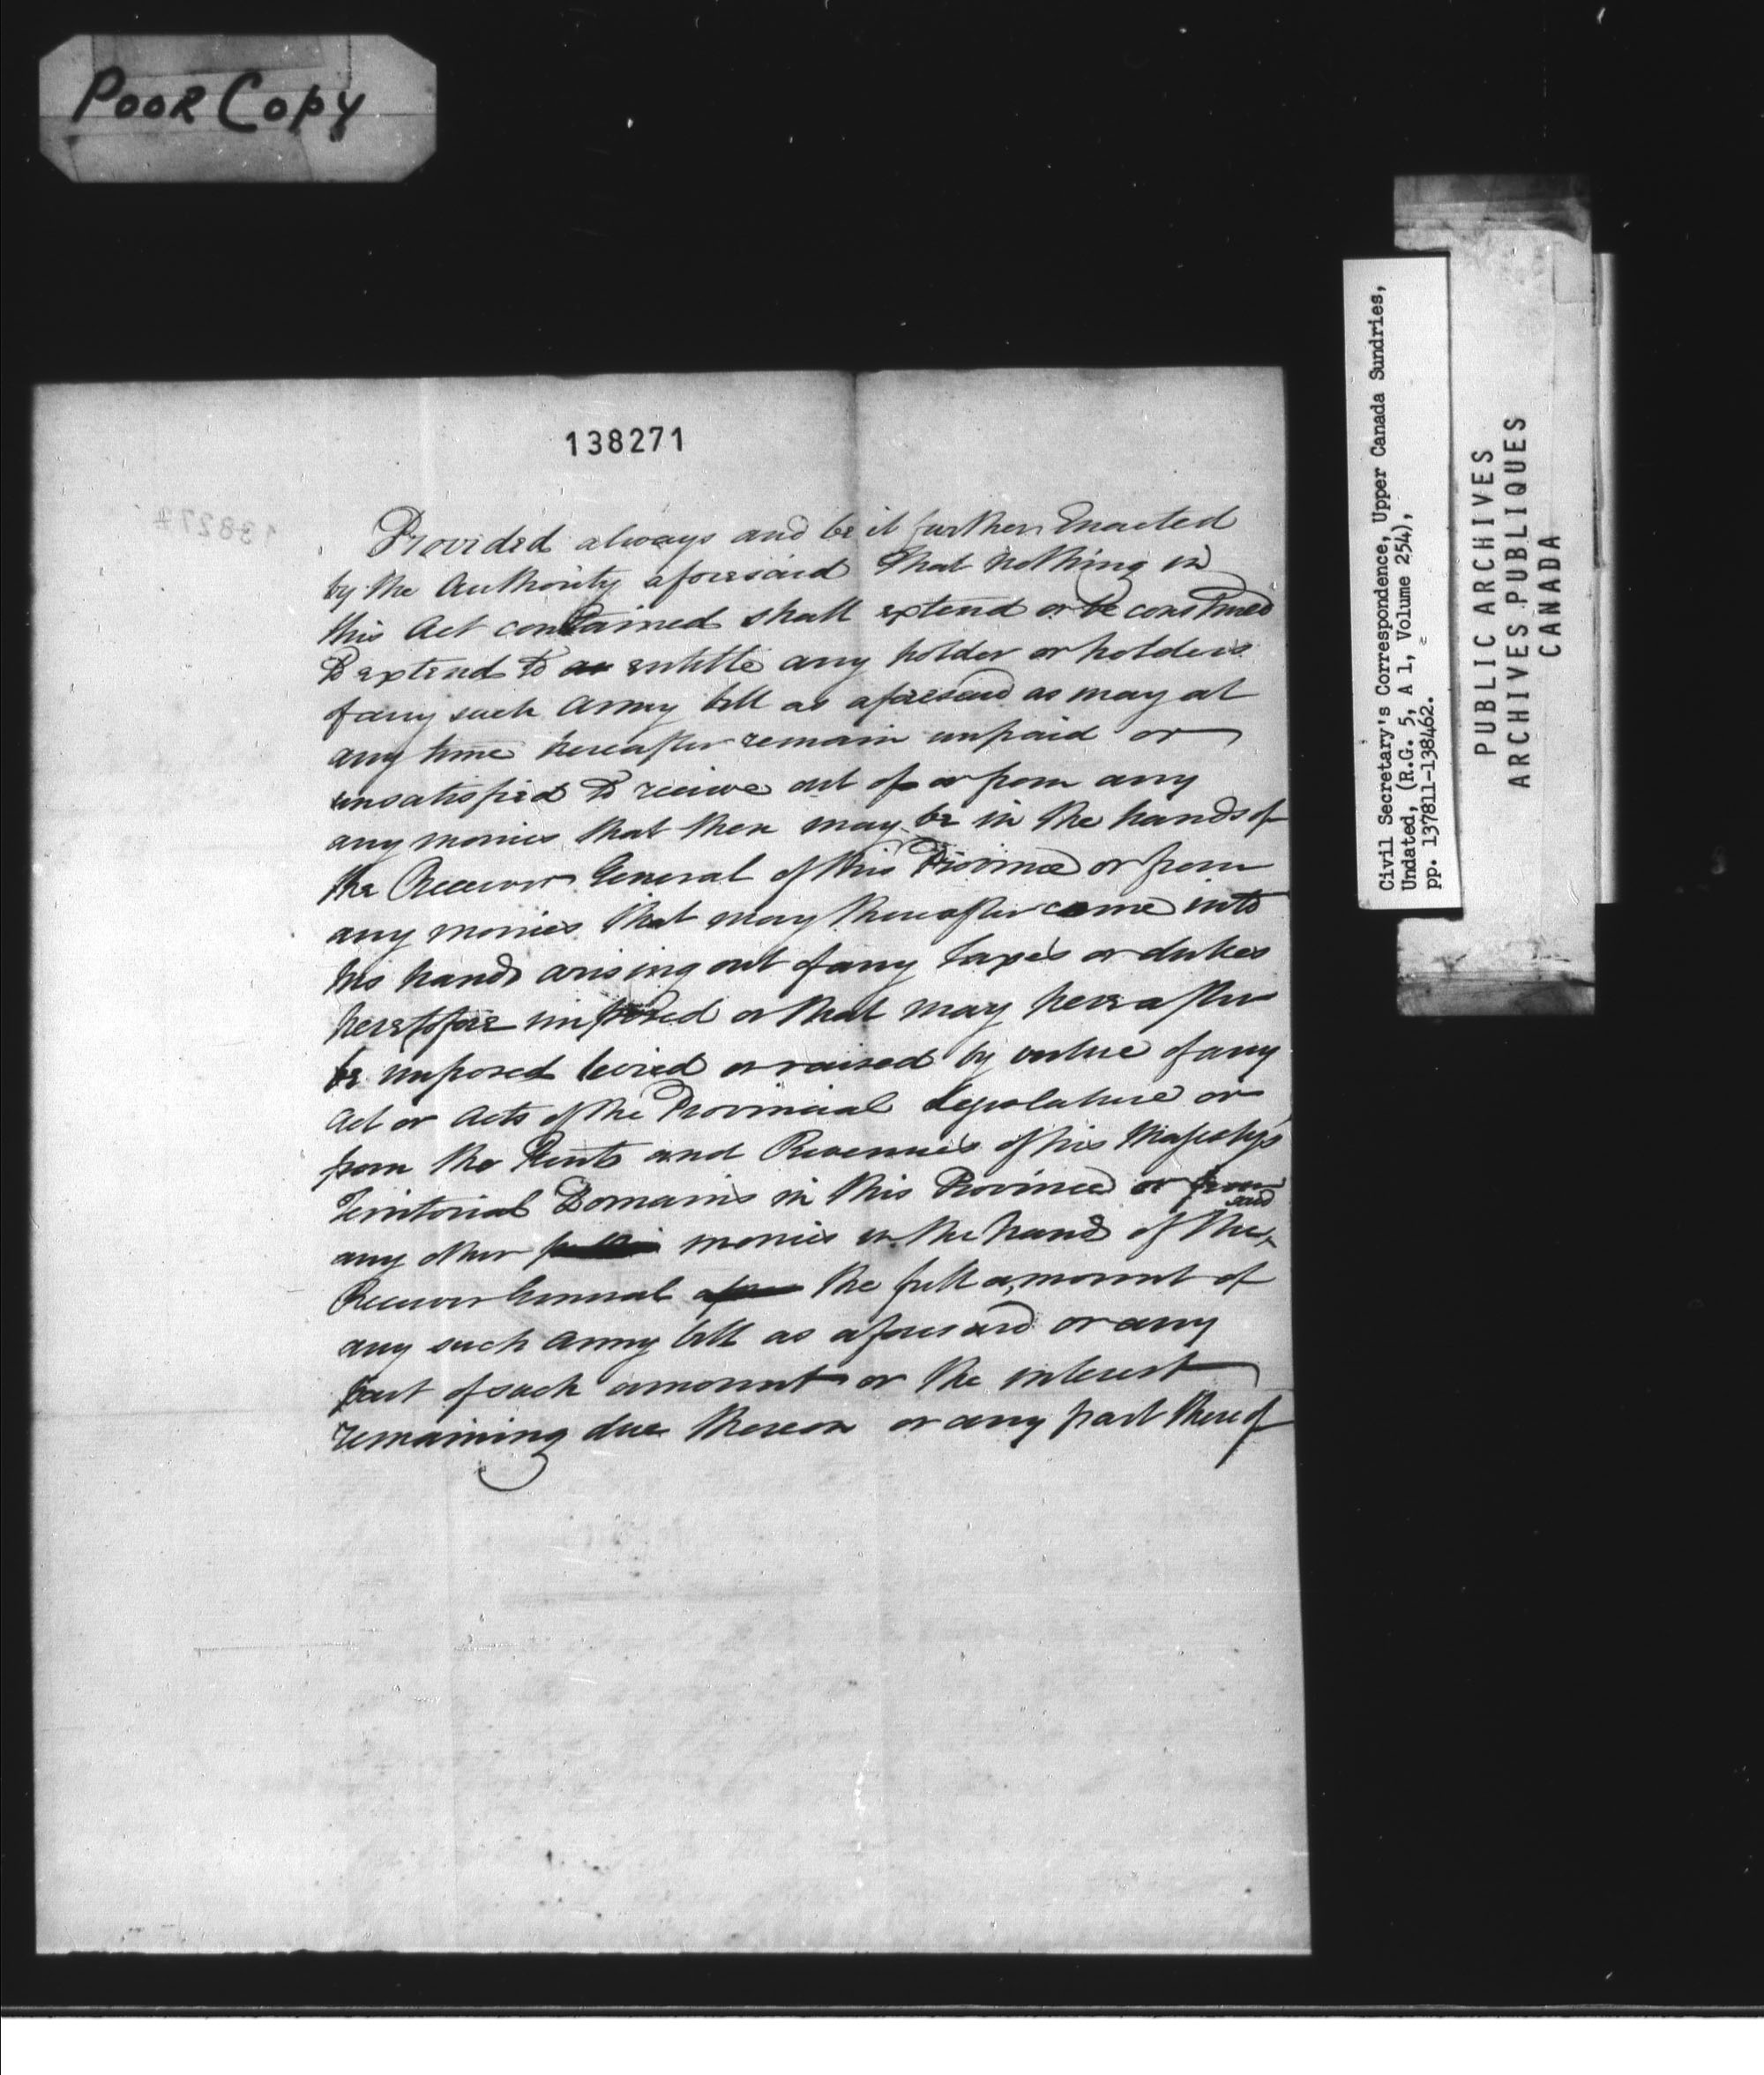 POOR COPY
138271
Provided always and be it further Enacted
by the Authority aforesaid that nothing in
this Act contained shall extend or be construed
to extend to entitle any holder or holders
of any such Army bill as aforesaid as may at
any time hereafter remain unpaid or
unsatisfied to receive out of or from any
any monies that then may be in the hands of
the Receiver General of this Province or from
any monies that may thereafter come into
his hands arising out of any taxes or duties
heretofore imposed or that may hereafter
be imposed levied or raised by virtue of any
Act or Acts of the Provincial Legislature or
from the Rents and Revenues of his Majestys
Territorial Domains in this Province or from
any other monies in the hands of the said
Receiver General the full amount of
any such Army bill as aforesaid or any
part of such amount or the interest
remaining due thereon or any part thereof
Civil Secretary's Correspondence, Upper Canada Sundries,
Undated, (R.G. 5, A 1, Volume 254),
pp. 137811-138462.
PUBLIC ARCHIVES
ARCHIVES PUBLIQUES
CANADA